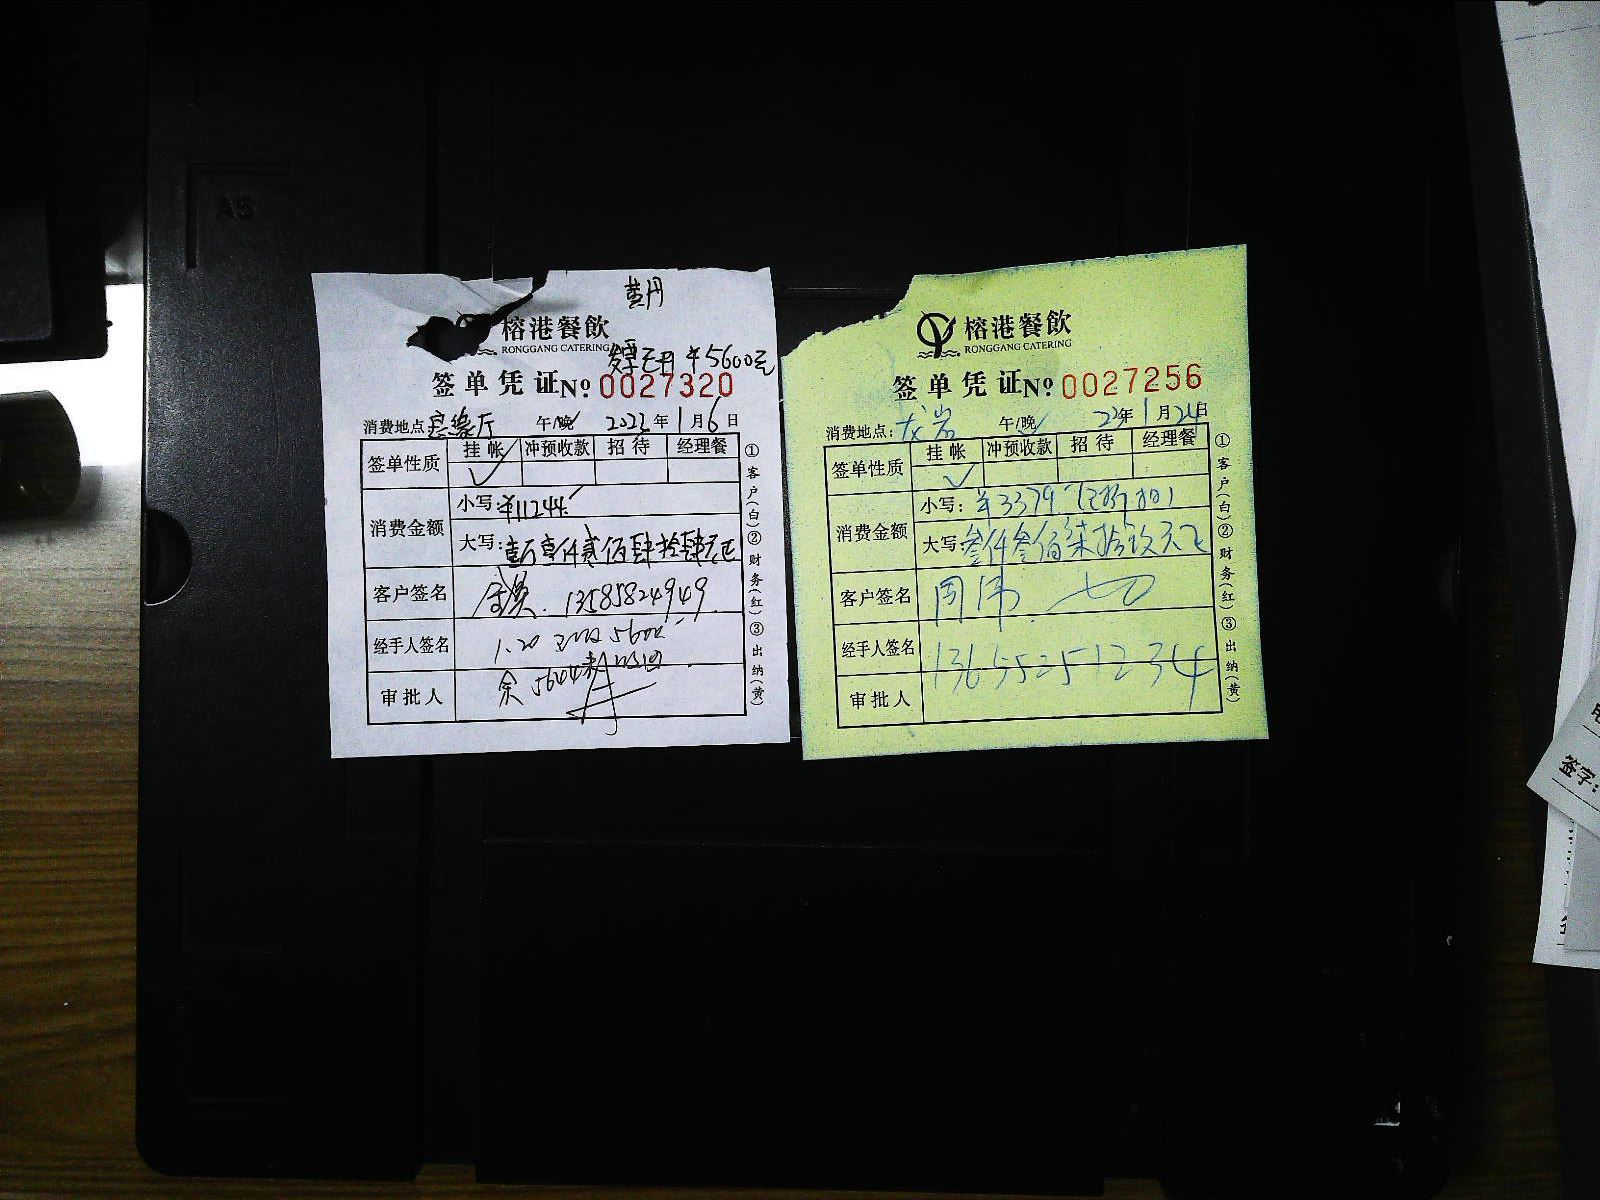 A5
黄丹
榕港餐飲
RONGGANG CATERING
5600元
签单凭证 No. 0027320
消费地点: 宴缘厅 午/晚 2023年1月6日
签单性质 挂帐 冲预收款 招待 经理餐
消费金额 小写: ¥11244
大写: 壹万壹仟贰佰肆拾肆元正
客户签名 13585824949
经手人签名 1.20 5600
审批人 余5644
①客户(白)②财务(红)③出纳(黄)
榕港餐飲
RONGGANG CATERING
签单凭证 No. 0027256
消费地点: 龙岩 午/晚 23年1月24日
签单性质 挂帐 冲预收款 招待 经理餐
消费金额 小写: ¥3379
大写: 叁仟叁佰柒拾玖元正
客户签名 周沛
经手人签名 13655251234
审批人
①客户(白)②财务(红)③出纳(黄)
签字: